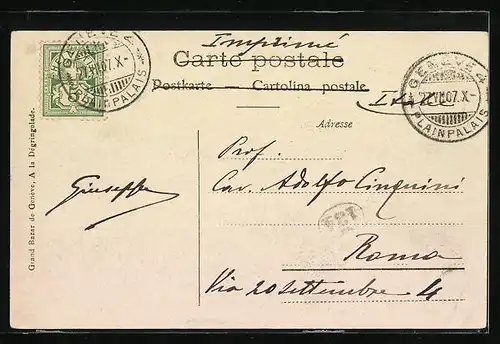 Imprimé
Carte postale
Postkarte — Cartolina postale
Italie
Adresse
GENÈVE 4
27.VII.07.X-
PLAINPALAIS
GENÈVE 4
27.VII.07.X-
PLAINPALAIS
5
Prof.
Cav. Adolfo Cinquini
Roma
Via 20 settembre 4
Giuseppe
Grand Bazar de Genève, A la Dégringolade.